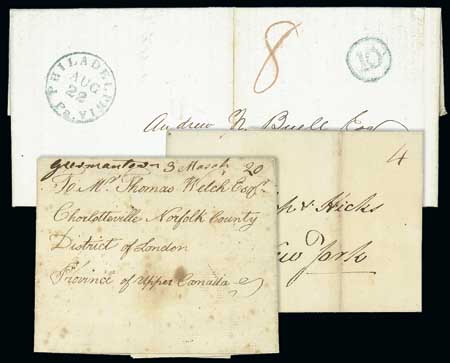 PHILADELPHIA Pa.
AUG
22
8
10
Andrew N. Buell Esq
4
& Hicks
New York
Germantown 3 March 20
To Mr. Thomas Welch Esqr.
Charlotteville Norfolk County
District of London
Province of Upper Canada